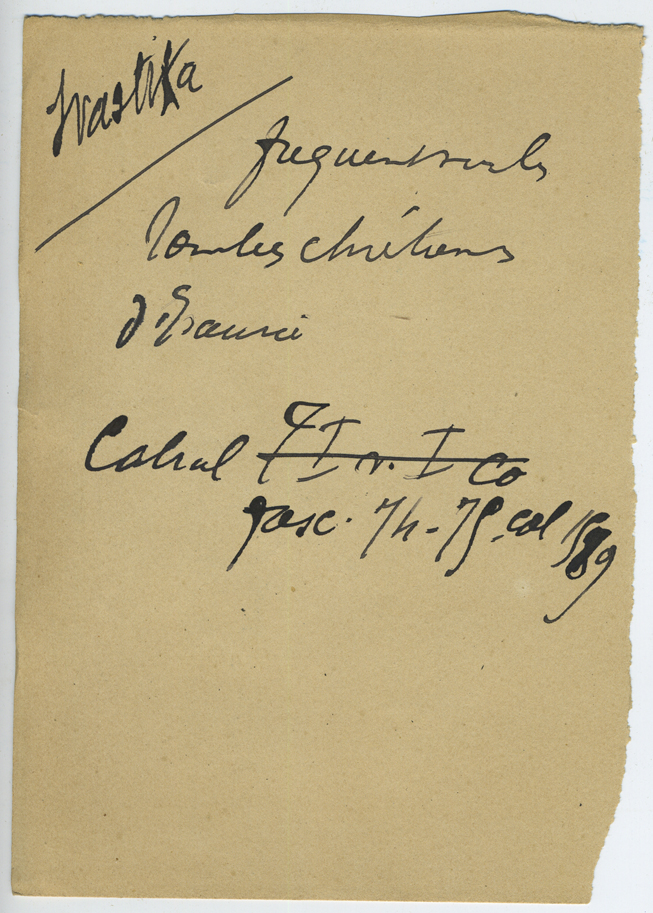 Svastika
frequent sur les
tombes chrétiens
d'Isaurie
Cabrol T I v. I Co
fasc. 74-75 col 1589